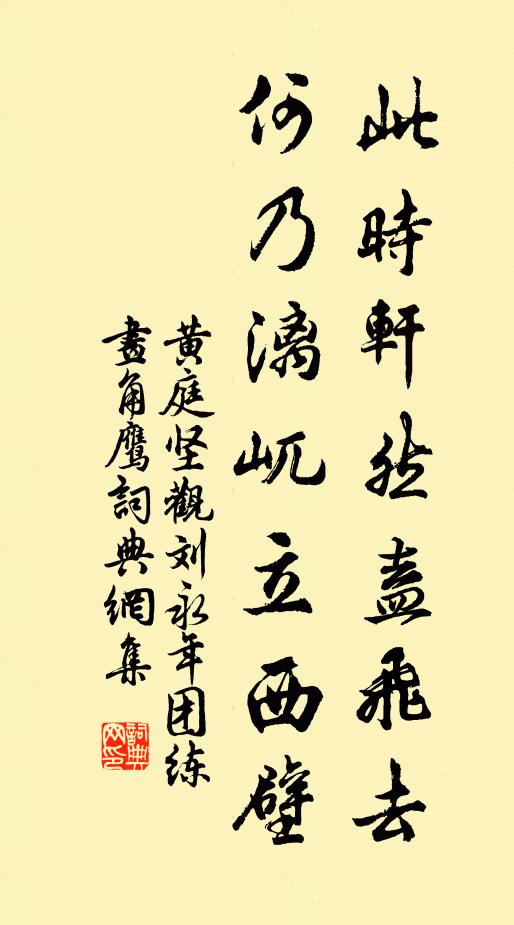 此時軒然盍飛去
何乃漓屼立西壁
黄庭坚觀刘永年团练
畫角鹰詞典網集
詞典
网印